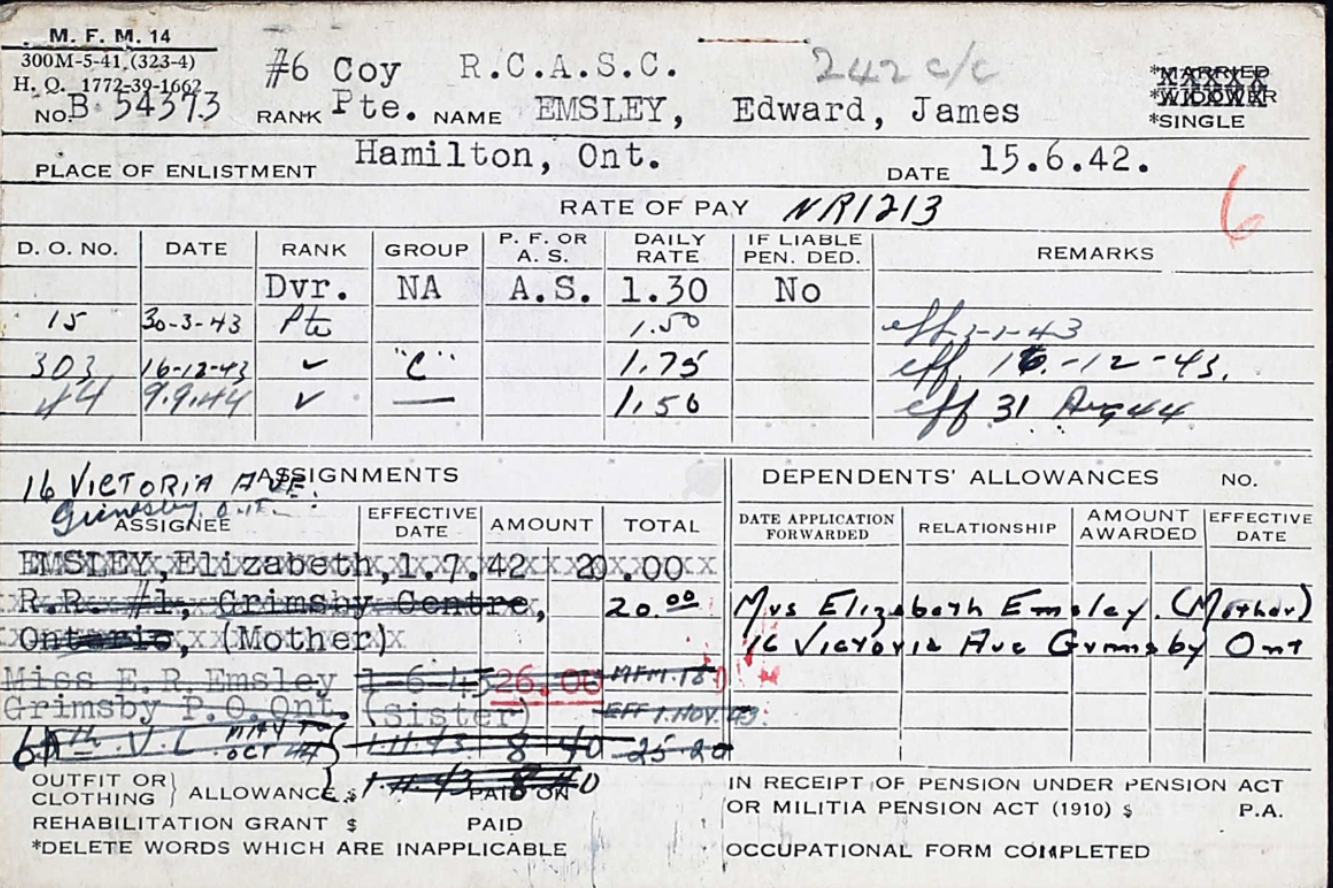 M. F. M. 14
300M-5-41 (323-4)
H. Q. 1772-39-1662
#6 Coy R.C.A.S.C. 242 c/c
*MARRIED
*WIDOWER
*SINGLE
NO. B 54373 RANK Pte. NAME EMSLEY, Edward, James
PLACE OF ENLISTMENT Hamilton, Ont. DATE 15.6.42.
RATE OF PAY NR1213 6
D. O. NO. DATE RANK GROUP P. F. OR A. S. DAILY RATE IF LIABLE PEN. DED. REMARKS
Dvr. NA A.S. 1.30 No
15 30-3-43 Pte 1.50 eff 3-1-43
303 16-12-43 ✓ "C" 1.75 eff. 16.-12-43.
44 9.9.44 ✓ — 1.50 eff 31 Aug 44
ASSIGNMENTS
16 VICTORIA AVE.
Grimsby Ont.
ASSIGNEE EFFECTIVE DATE AMOUNT TOTAL
EMSLEY, Elizabeth, 1.7.42 20.00
R.R. #1, Grimsby Centre, 20.00
Ontario, (Mother)
Miss E.R. Emsley 1-6-43 26.00 MFM.18
Grimsby P.O. Ont. (Sister) EFF 1.NOV.43.
V.L. MAY TO OCT 44 1.11.43 8 40 25-20
DEPENDENTS' ALLOWANCES NO.
DATE APPLICATION FORWARDED RELATIONSHIP AMOUNT AWARDED EFFECTIVE DATE
Mrs Elizabeth Emsley. (Mother)
16 Victoria Ave Grimsby Ont
OUTFIT OR CLOTHING } ALLOWANCE $ 1.11.43 8 40 PAID ON
REHABILITATION GRANT $ PAID
*DELETE WORDS WHICH ARE INAPPLICABLE
IN RECEIPT OF PENSION UNDER PENSION ACT
OR MILITIA PENSION ACT (1910) $ P.A.
OCCUPATIONAL FORM COMPLETED